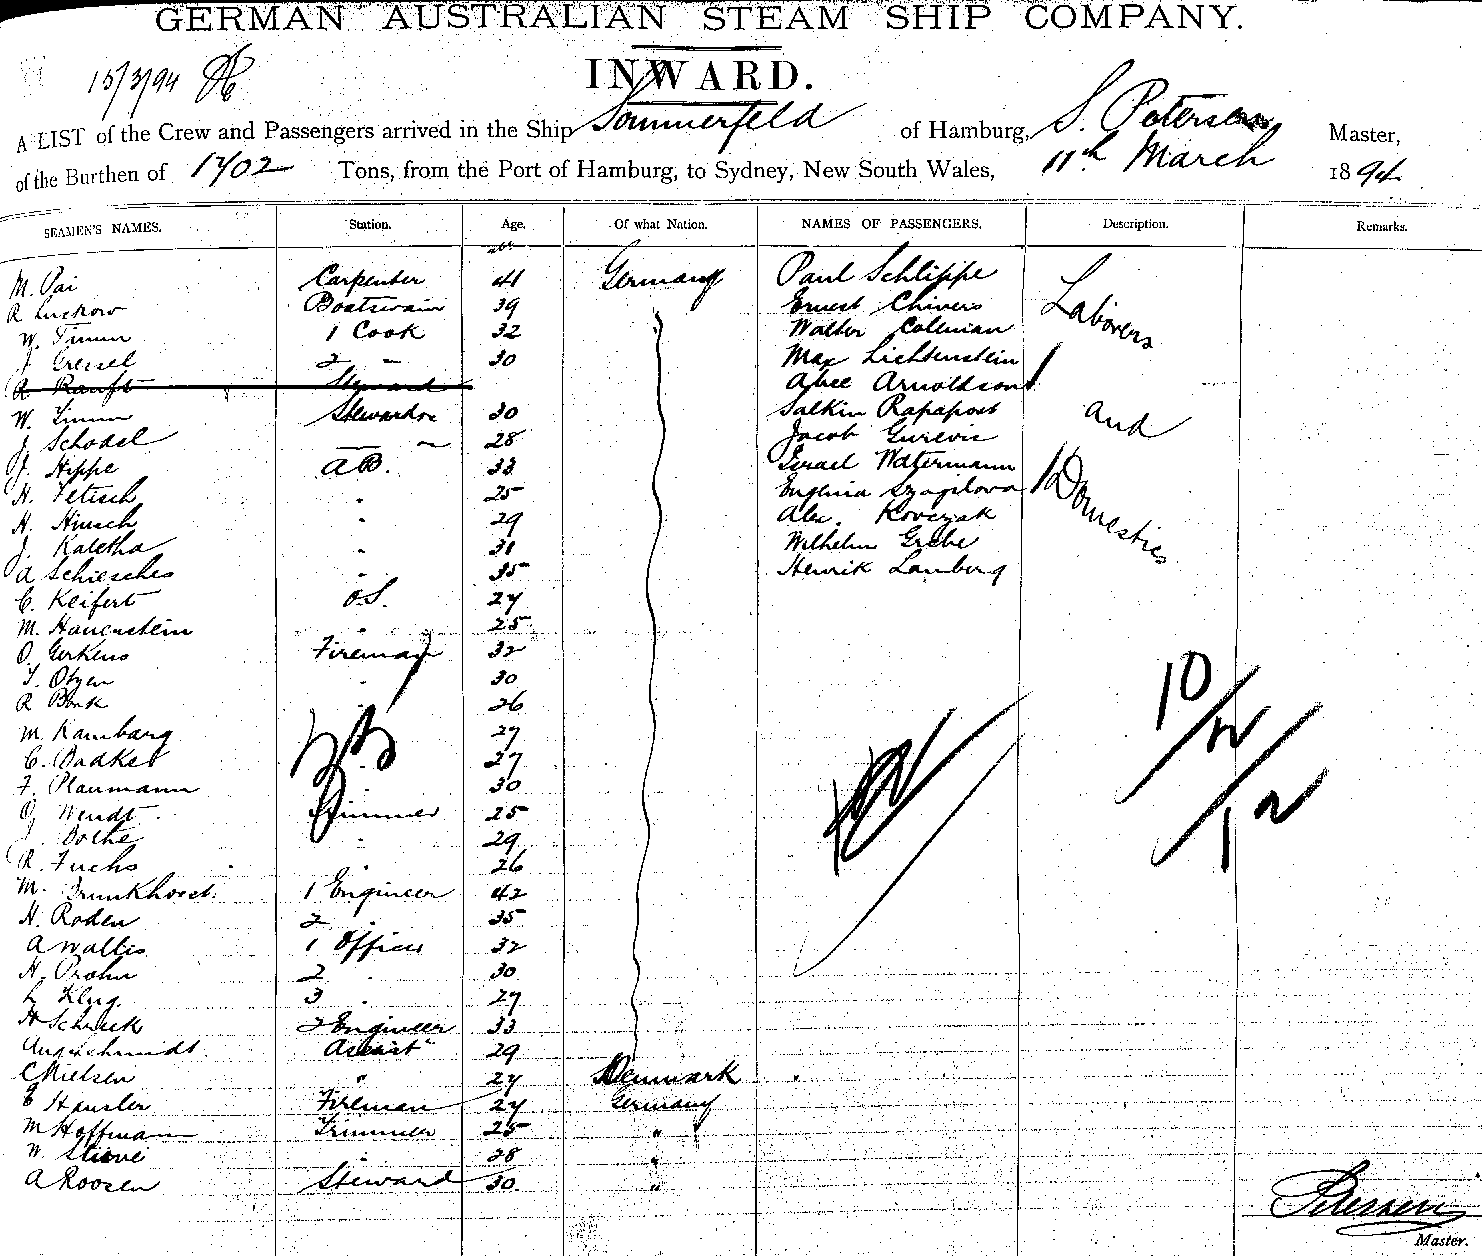 GERMAN AUSTRALIAN STEAM SHIP COMPANY.
INWARD.
15/3/94
A LIST of the Crew and Passengers arrived in the Ship Sommerfeld of Hamburg, S. Petersen Master,
of the Burthen of 1702 Tons, from the Port of Hamburg, to Sydney, New South Wales, 11th March 1894
SEAMEN'S NAMES. Station. Age. Of what Nation. NAMES OF PASSENGERS. Description. Remarks.
M. Pai Carpenter 41 Germany Paul Schlippe Laborers
R Luckow Boatswain 39 Ernest Chivers
W. Timm 1 Cook 32 Walter Coleman
J. Gressel 2 " 30 Max Lichtenstein
R Ranft Steward Arnoldson
W. Timm Stewardss 30 Salkin Rapaport and
J. Schodel 28 Jacob Gurevic
J. Hippe AB. 33 Israel Watermann Domestics
H. Fetisch " 25 Eugenia
H. Hinsch " 29 Alex. Kovczak
J. Kaletha " 31 Wilhelm Grebe
A Schiesches " 35 Henrik Lamberg
C. Keifert O.S. 27
M. Hauenstein " 25
O. Gerkens Fireman 32
T. Olzen 30
R Bonk 26
M. Kambarg 27
C. Badker 27
F. Plaumann 30
O. Wendt Trimmer 25
J. Bothe 29
R. Fuchs 26
M. Brunkhorst. 1 Engineer 42
H. Roden 2 " 35
A Wallis 1 Officer 32
H. Prohn 2 " 30
L Klug 3 " 27
H Schuck 2 Engineer 33
Aug. Schmidt Assist" 29
C Nielsen " 27 Denmark
E Hansler Fireman 27 Germany
M Hoffmann Trimmer 25 "
W. Stieve " 28 "
A Roosen Steward 30 "
10/2
12
Petersen
Master.